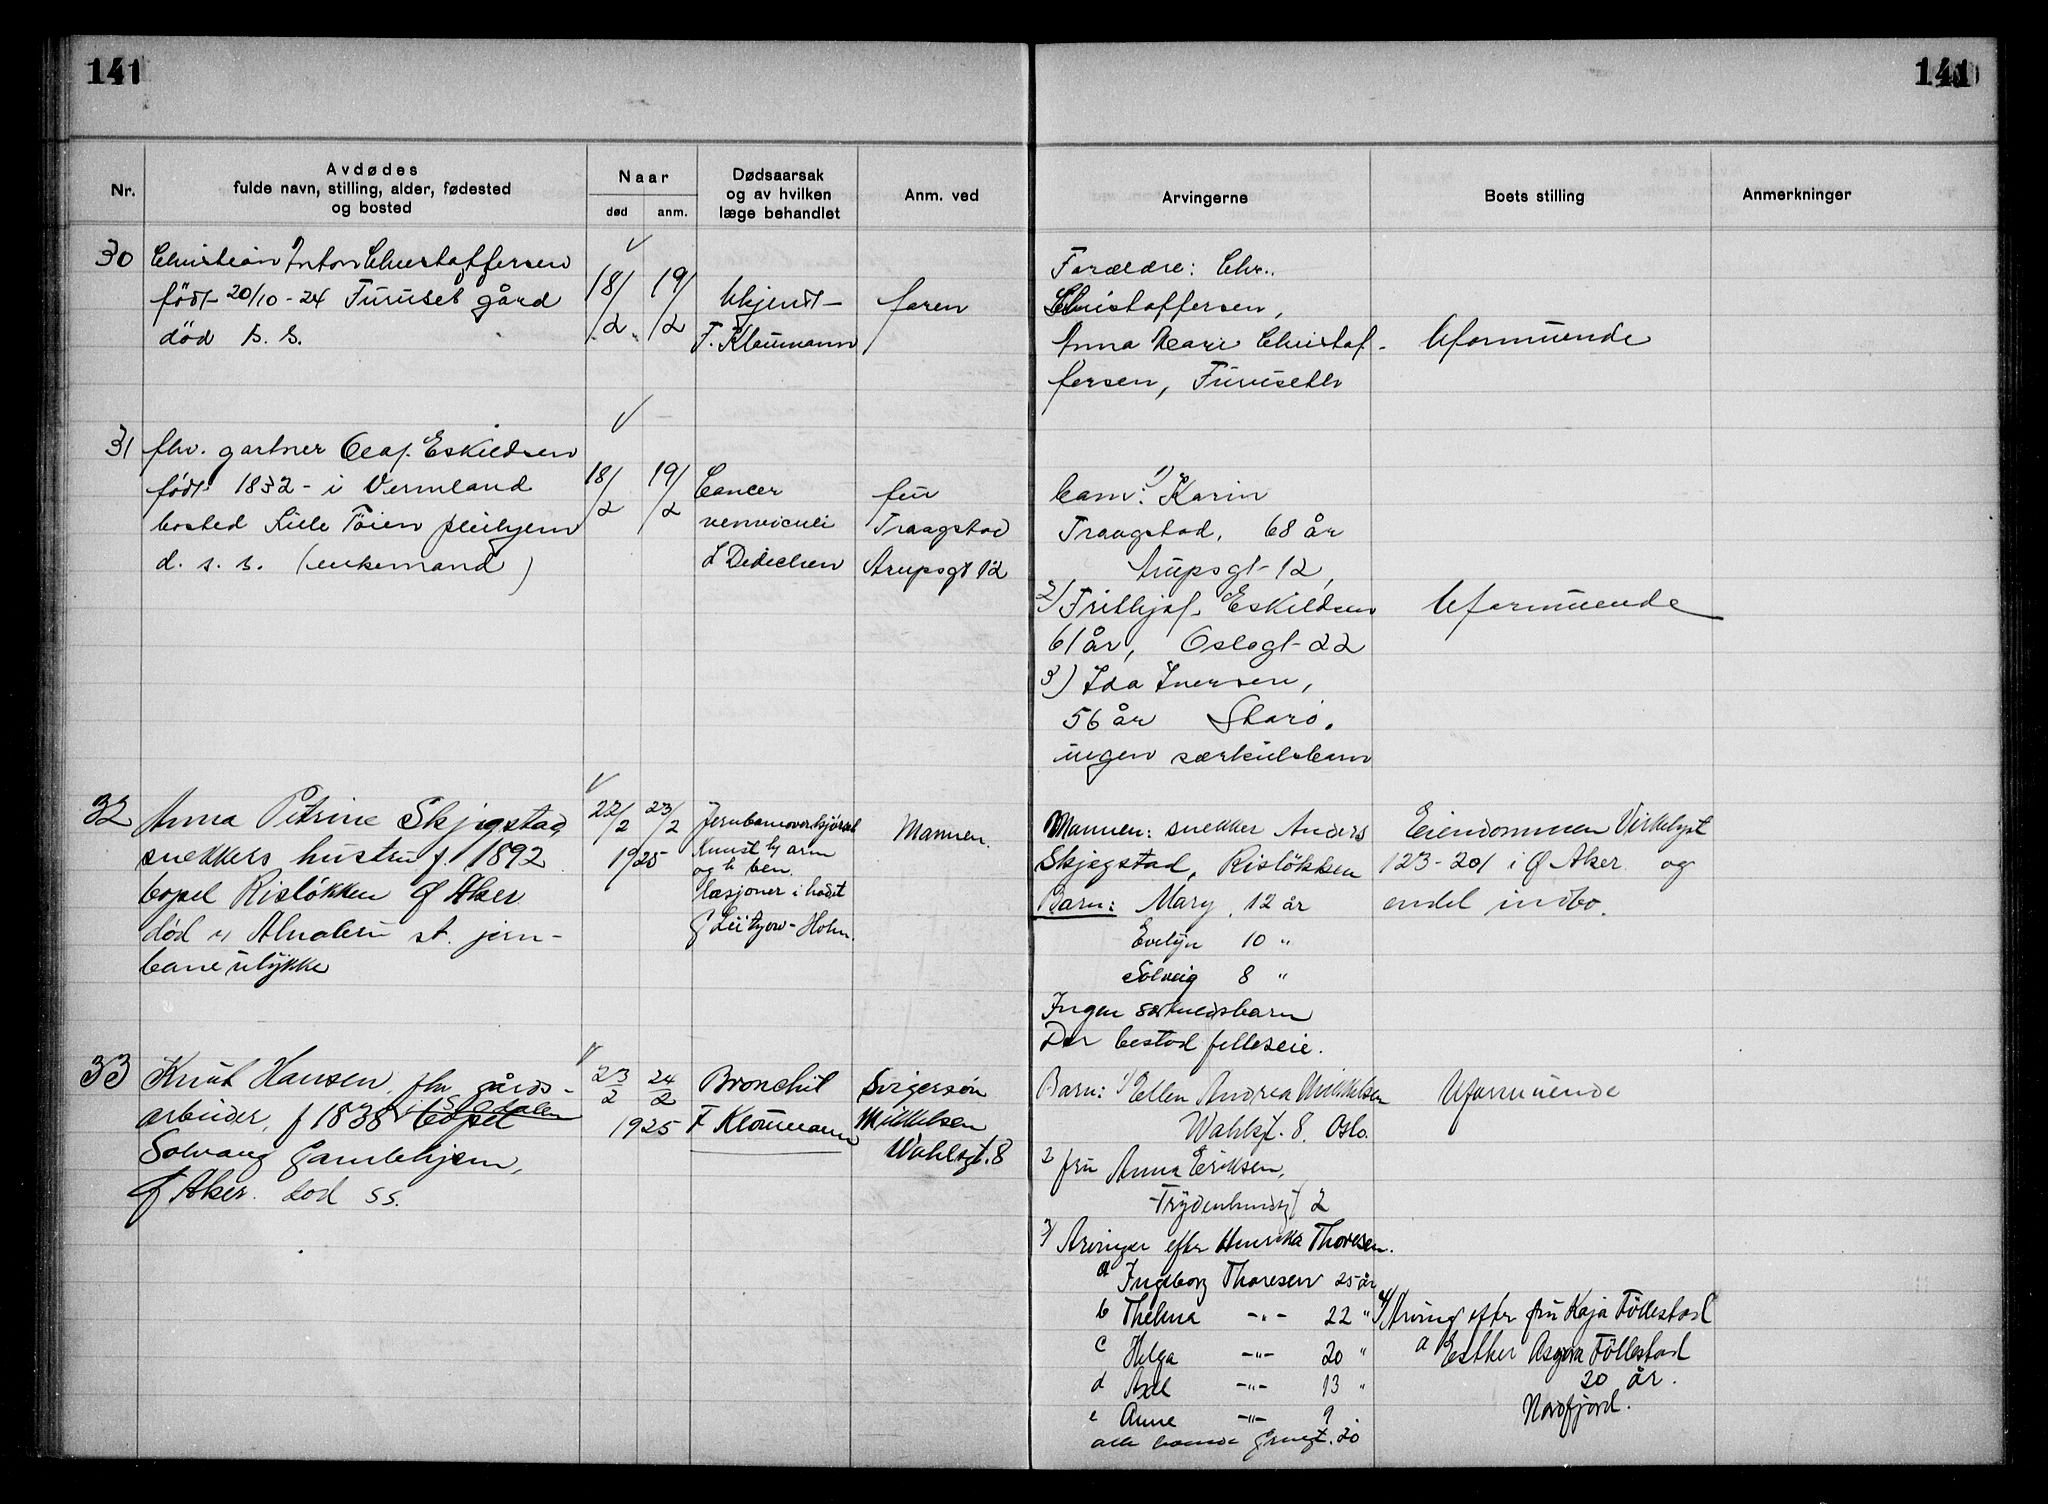 141
141
Nr.
Avdødes
fulde navn, stilling, alder, fødested
og bosted
Naar
død
anm.
Dødsaarsak
og av hvilken
læge behandlet
Anm. ved
Arvingerne
Boets stilling
Anmerkninger
30
Christian Anton Christoffersen
født 20/10-24 Furuset gård
død s. s.
18/2
19/2
Ukjendt
F. Klaumann
faren
Forældre: Chr.
Christoffersen,
Anna Marie Christof-
fersen, Furuseth
Uformuende
31
fhv. gartner Olaf Eskildsen
født 1832 - i Vermland
bosted Lille Tøien pleihjem
d. s. s. (enkemand)
18/2
19/2
Cancer
ventriculi
L Dedichen
fru
Traagstad
Arupsgt 12
barn: 1) Karin
Traagstad, 68 år
Arupsgt-12,
2) Frithjof Eskildsen
61 år, Oslogt-22
3) Ida Iversen,
56 år
ingen særkulsbarn
Uformuende
32
Anna Petrine Skjegstad
snekkers hustru f. 1892
bopel Risløkken Ø Aker
død v Alnabru st. jern-
bane ulykke
22/2
23/2
1925
Jernbaneoverkjørsel
Knust arm
og ben.
læsjoner i hodet
G Lützow-Holm.
Mannen.
Mannen: snekker Anders
Skjegstad, Risløkken
Barn: Mary, 12 år
Evelyn 10 "
Solveig 8 "
Ingen særkuldsbarn
Der bestod felleseie.
Eiendommen Virkelyst
123-201 i Ø Aker og
endel indbo.
33
Knut Hansen, fhv gårds-
arbeider, f 1838 bopel
Solvang Gamlehjem,
Ø Aker. død ss.
23/2
24/2
1925
Bronchit
F Klaumann
Svigersøn
Mikkelsen
Wahlsgt. 8
Barn: 1) Ellen Andrea Mikkelsen
Wahlsgt. 8. Oslo.
2 fru Anna Eriksen,
2
3) Arvinger efter Henrikka Thoresen.
a Ingeborg Thoresen 25 år
b Thelma -"- 22 "
c Helga -"- 20 "
d Axel -"- 13 "
e Anne -"- 9
alle 20
Uformuende
4) Arving efter fru Kaja Føllestad
a Esther Føllestad
20 år.
Nordfjord.